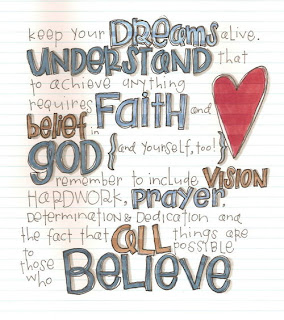 keep your DREAMS alive.
UNDERSTAND that
to achieve anything
requires FAITH and
belief in
GOD {and yourself, too!}
remember to include VISION
HARDWORK, prayer,
DETERMINATION & DEDICATION and
the fact that ALL things are
possible
to those who BELIEVE